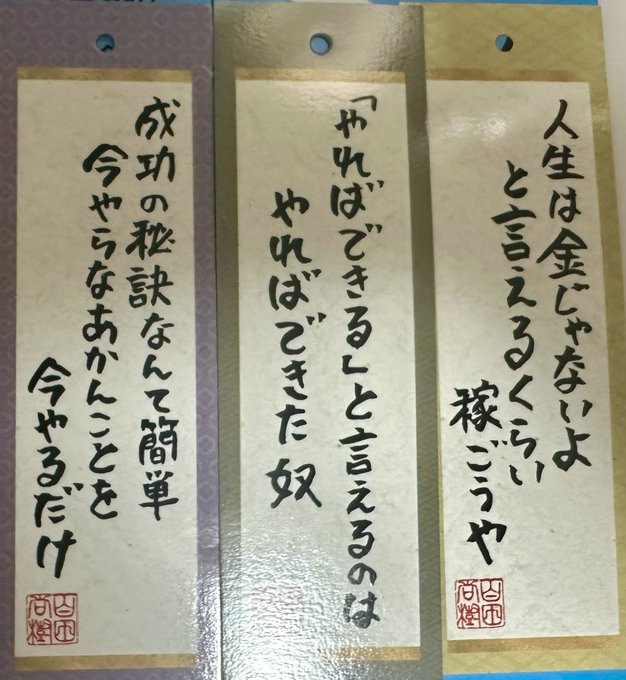 人生は金じゃないよ
と言えるくらい
稼ごうや
百田
尚樹
「やればできる」と言えるのは
やればできた奴
成功の秘訣なんて簡単
今やらなあかんことを
今やるだけ
百田
尚樹